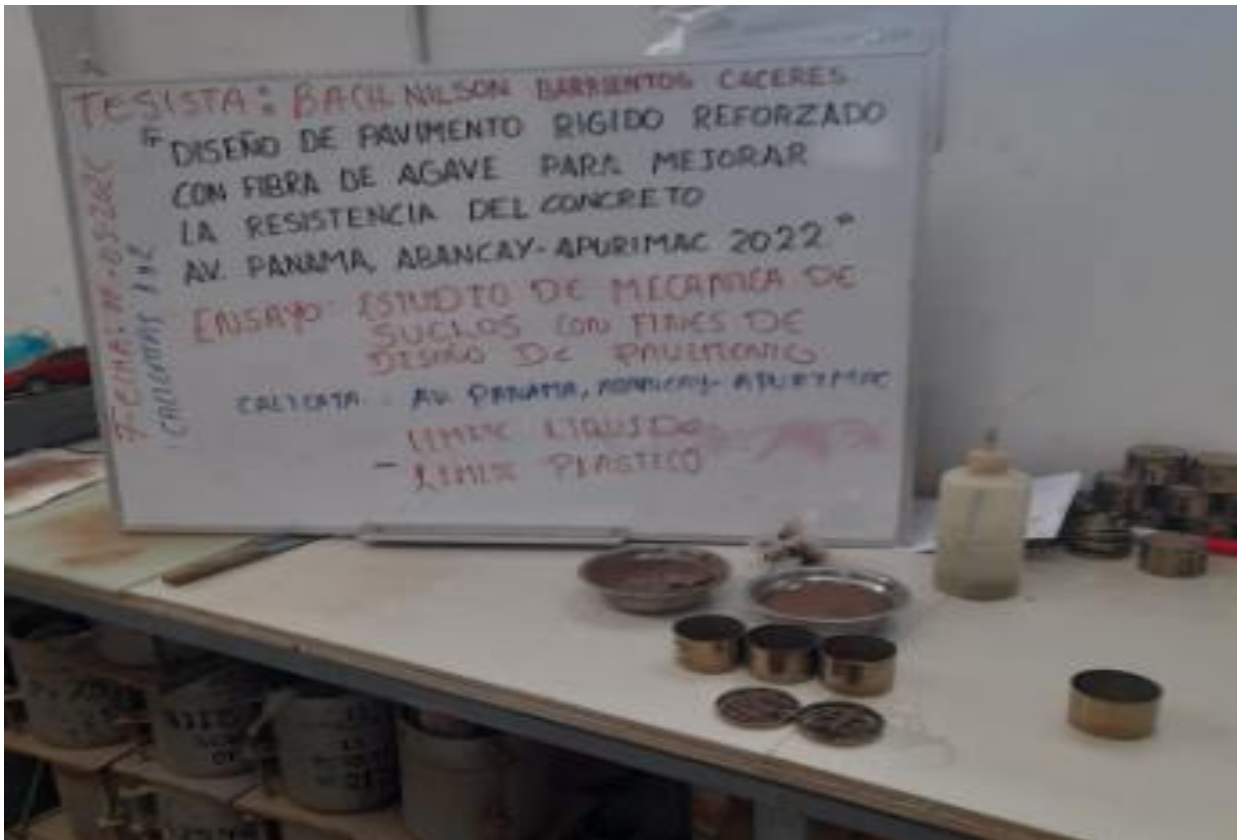 TESISTA: BACH. NILSON BARRIENTOS CACERES
"DISEÑO DE PAVIMENTO RIGIDO REFORZADO
CON FIBRA DE AGAVE PARA MEJORAR
LA RESISTENCIA DEL CONCRETO
AV. PANAMA, ABANCAY-APURIMAC 2022"
ENSAYO: ESTUDIO DE MECANICA DE
SUELOS CON FINES DE
DISEÑO DE PAVIMENTO
CALICATA: AV. PANAMA, ABANCAY-APURIMAC
LIMITE LIQUIDO
- LIMITE PLASTICO
FECHA:
CALICATAS 1 y 2